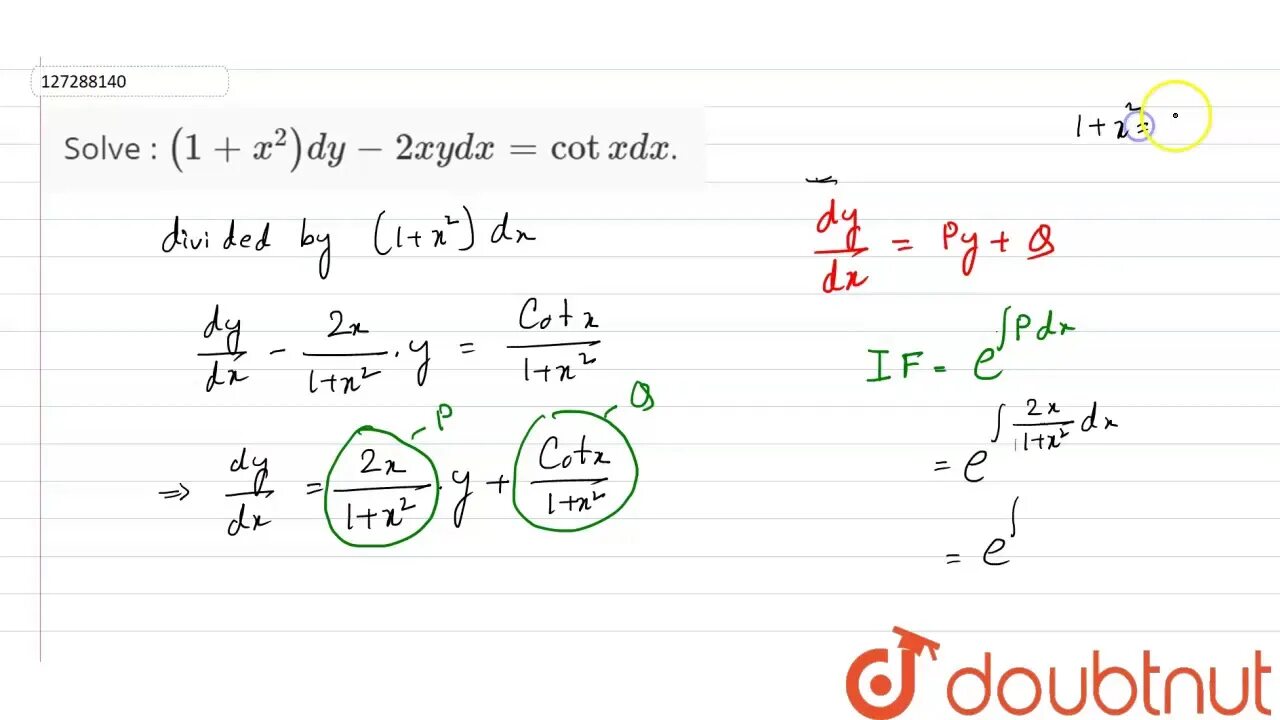 127288140
Solve : (1 + x²)dy − 2xydx = cot xdx.
divided by (1+x²) dx
dy/dx − 2x/1+x² . y = Cotx/1+x²
P
Q
⇒ dy/dx = 2x/1+x² . y + Cotx/1+x²
1+x² =
dy/dx = Py + Q
IF = e^∫Pdx
= e^∫ 2x/1+x² dx
= e^∫
doubtnut